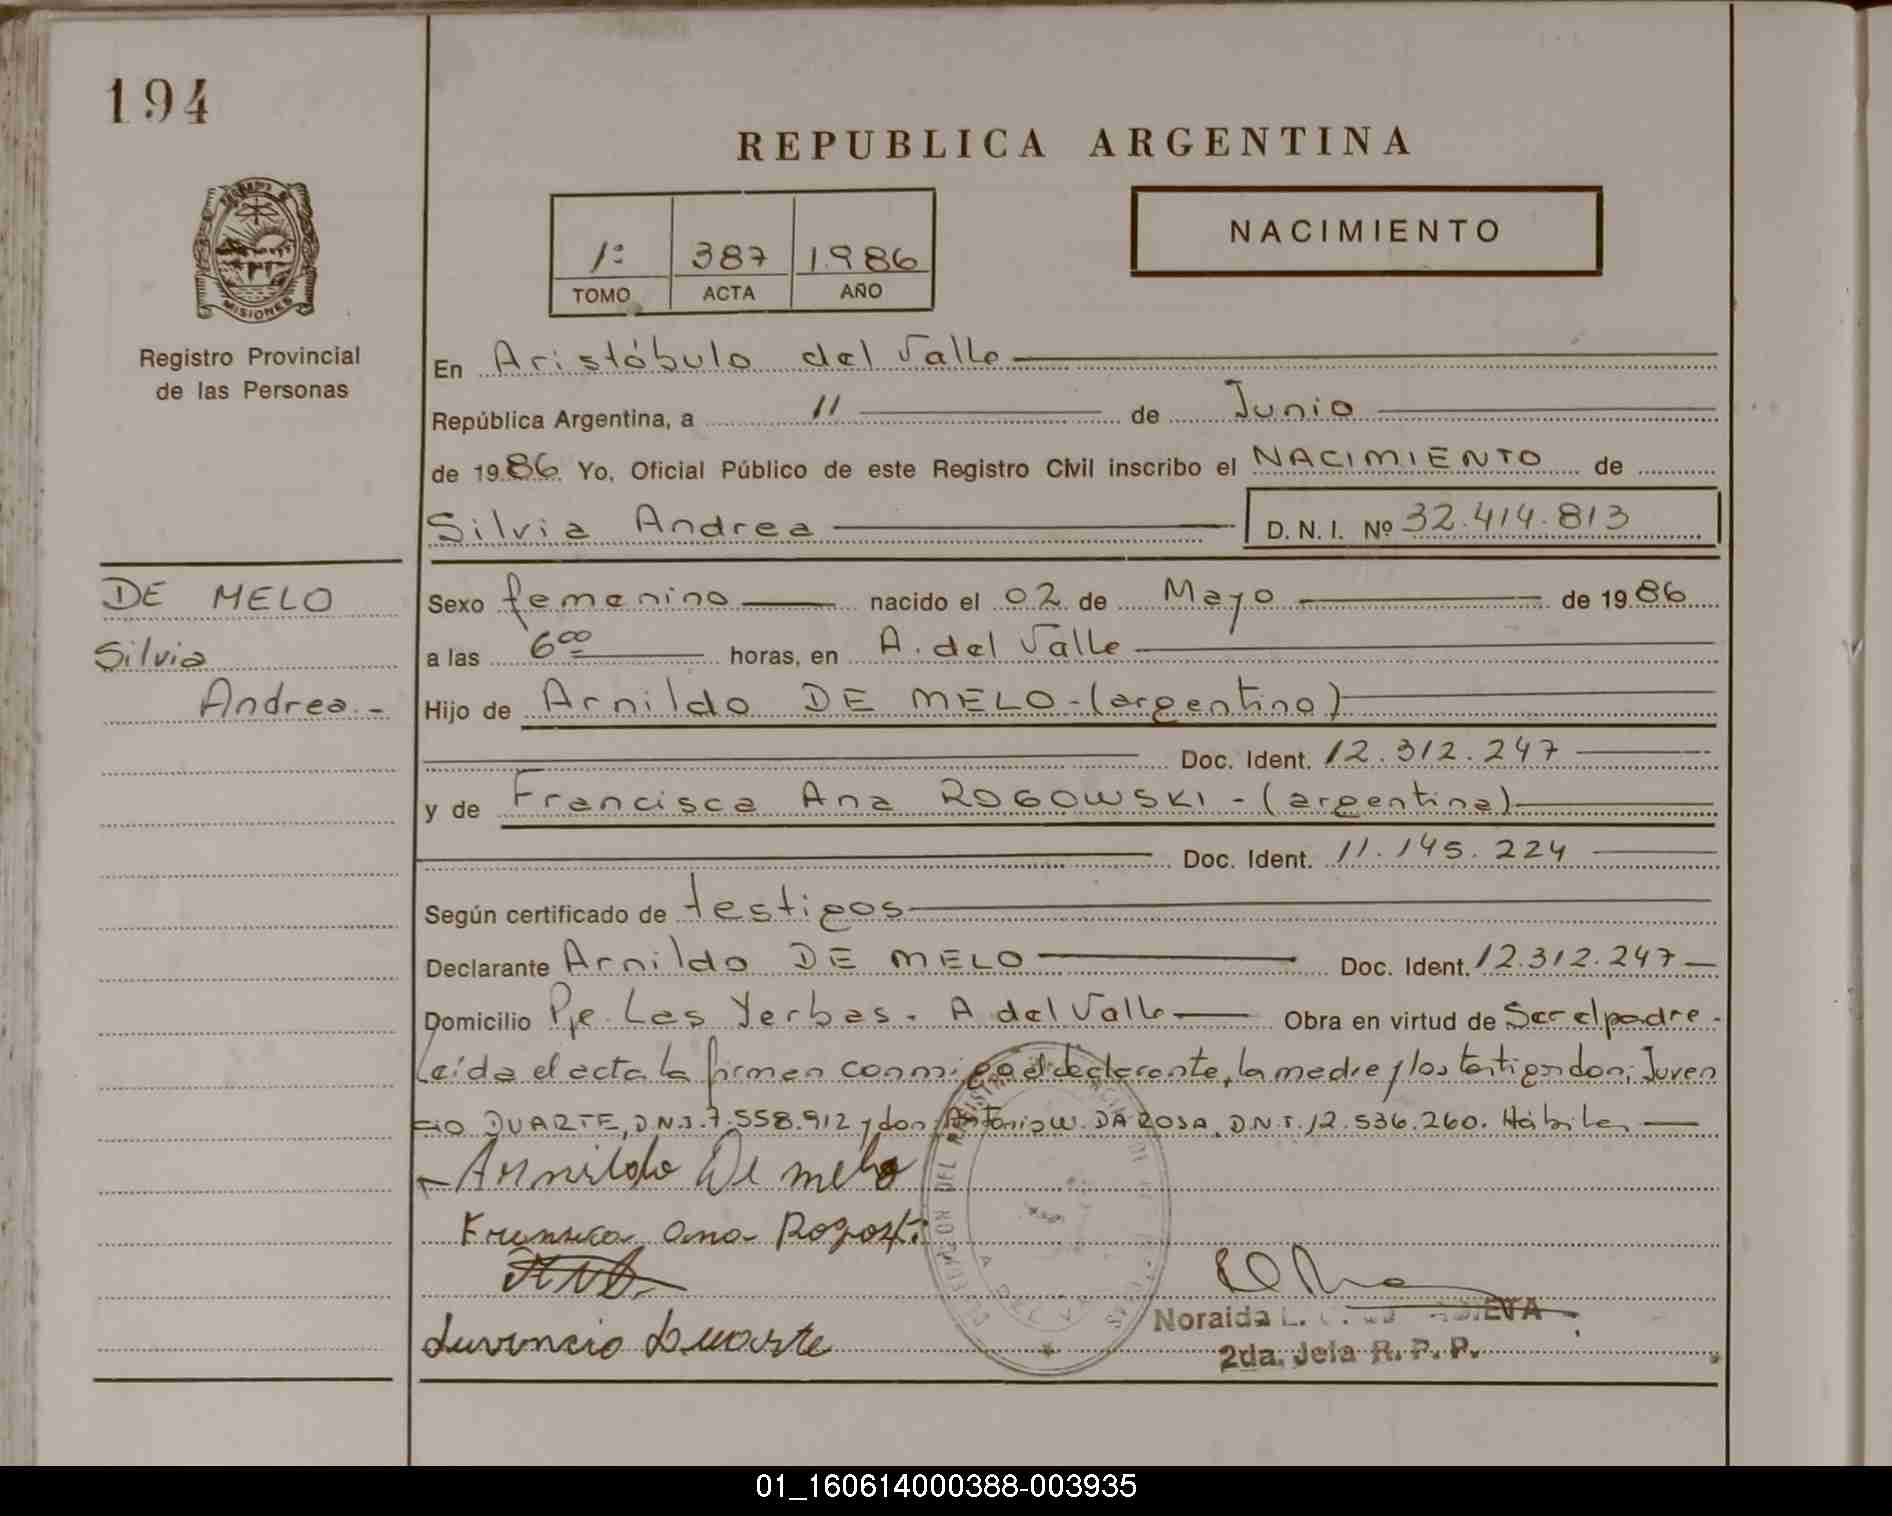 194
REPUBLICA ARGENTINA
1º 387 1.986
TOMO ACTA AÑO
NACIMIENTO
MISIONES
Registro Provincial
de las Personas
En Aristóbulo del Valle
República Argentina, a 11 de Junio
de 1986 Yo, Oficial Público de este Registro Civil inscribo el NACIMIENTO de
Silvia Andrea D. N. I. Nº 32.414.813
DE MELO
Silvia
Andrea.-
Sexo femenino nacido el 02 de Mayo de 1986
a las 6 00 horas, en A. del Valle
Hijo de Arnildo DE MELO-(argentino)
Doc. Ident. 12.312.247
y de Francisca Ana ROGOWSKI-(argentina)
Doc. Ident. 11.145.224
Según certificado de testigos
Declarante Arnildo DE MELO Doc. Ident. 12.312.247
Domicilio Pje. Las Yerbas. A del Valle Obra en virtud de Ser el padre.
Leída el acta la firman conmigo el declarante, la madre y los testigos don: Juven
cio DUARTE, D.N.I. 7.558.912 y don: Antonio W. DA ROSA, D.N.I. 12.536.260. Hábiles
Arnildo De melo
Ana
Juvencio Duarte
Noraida L.
2da. Jefa R. P. P.
01_160614000388-003935